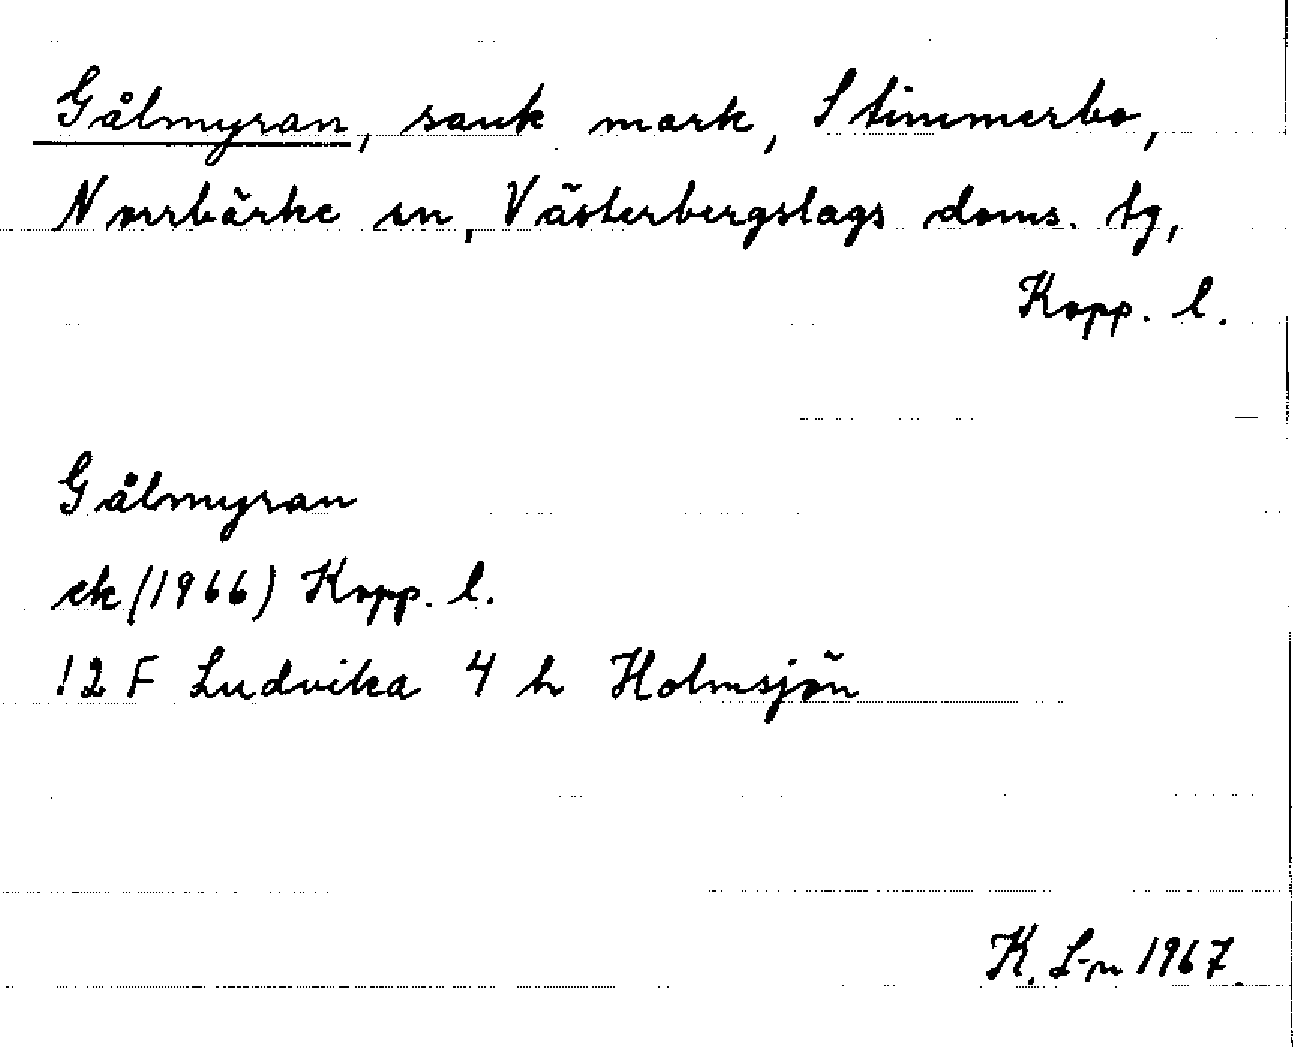 Gålmyran, sank mark, Stimmerbo,
Norrbärke sn, Västerbergslags doms. tg,
Kopp. l.
Gålmyran
ek (1966) Kopp. l.
12 F Ludvika 4 h Holmsjön
K. L-n 1967.